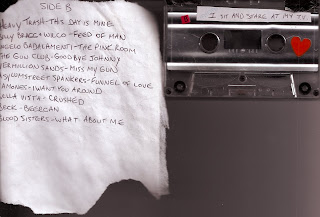 SIDE B
HEAVY TRASH - THIS DAY IS MINE
BILLY BRAGG & WILCO - FEED OF MAN
ANGELO BADALAMENTI - THE PINK ROOM
THE GUN CLUB - GOODBYE JOHNNY
VERMILLION SANDS - MISS MY GUN
ASYLUM STREET SPANKERS - FUNNEL OF LOVE
RAMONES - I WANT YOU AROUND
VISTA - CRUSHED
BECK -
BLOOD SISTERS - WHAT ABOUT ME
I SIT AND STARE AT MY TV